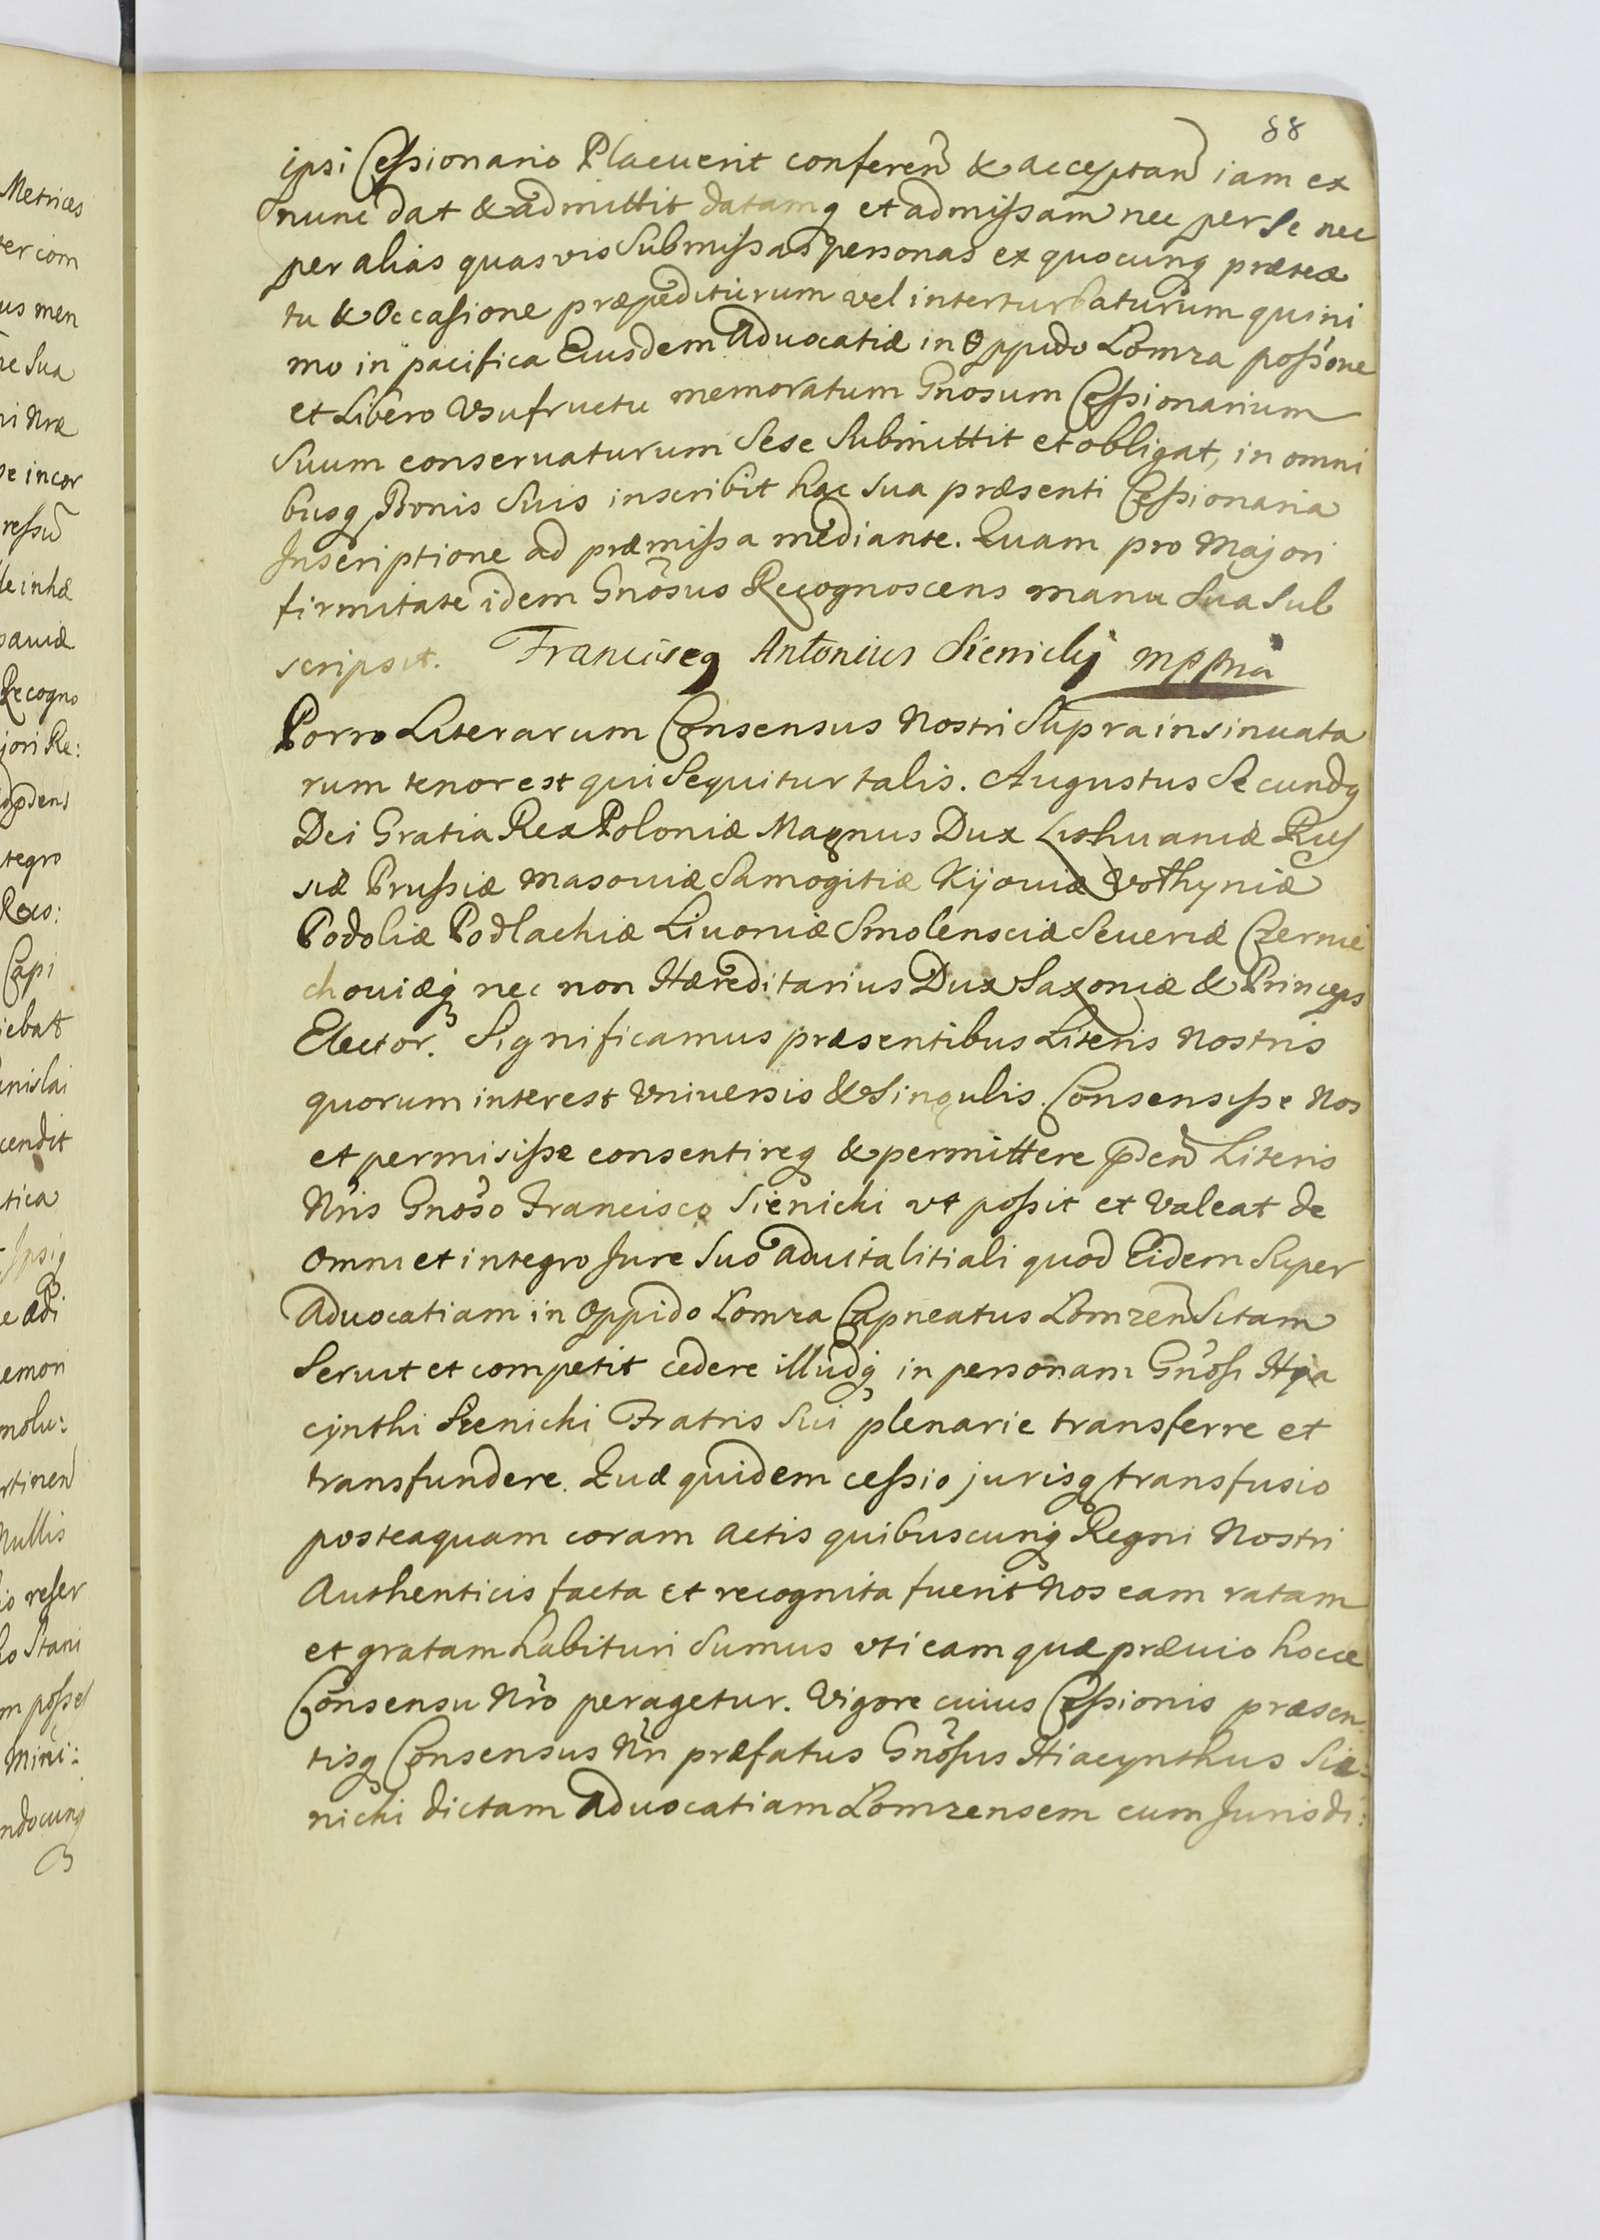 88
ipsi Cessionario Placuerit conferen̄ & acceptan̄ iam ex
nunc dat & admittit datamq̨ et admissam nec per se nec
per alias quasvis Submissas personas ex quocunq̨ prætex
tu & Occasione præpediturum vel interturbaturum quini
mo in pacifica Eiusdem Advocatiæ in Oppido Lomza poss̃one
et Libero Vsufructu memoratum Gnosum Cessionarium
Suum conservaturum Sese Submittit et obligat, in omni
busq̨ Bonis Suis inscribit hac Sua præsenti Cessionaria
Inscriptione ad præmissa mediante. Quam pro Majori
firmitate idem Gnõsus Recognoscens manu Sua Sub
scripsit. Franciscq̨ Antonius Sienicky mppria
Porro Literarum Consensus Nostri Supra insinuata
rum tenor est qui Sequitur talis. Augustus Secundq̨
Dei Gratia Rex Poloniæ Magnus Dux Lithuaniæ Rus
siæ Prussiæ Masoviæ Samogitiæ Kijoviæ Volhyniæ
Podoliæ Podlachiæ Livoniæ Smolensciæ Severiæ Czernie
choviæq̨ nec non Hæreditarius Dux Saxoniæ & Princeps
Elector. Significamus præsentibus Literis Nostris
quorum interest Vniversis & Singulis. Consensisse Nos
et permisisse consentireq̨ & permittere p̃den̄ Literis
Nr̃is Gnõso Francisco Sienicki vt possit et Valeat de
omni et integro Jure Suo advitalitiali quod Eidem Super
Advocatiam in Oppido Lomza Capneatus Lomzen̄ Sitam
Servit et competit cedere illudq̨ in personam Gnõsi Hya
cynthi Sienicki Fratris Sui plenarie transferre et
transfundere. Quæ quidem cessio jurisq̨ transfusio
posteaquam coram Actis quibuscunq̨ Regni Nostri
Authenticis facta et recognita fuerit Nos eam ratam
et gratam habituri Sumus vti eam quæ prævio hocce
Consensu Nr̃o peragetur. Vigore cuius Cessionis præsen
tisq̨ Consensus Nr̃i præfatus Gnõsus Hiacynthus Sie-
nicki dictam Advocatiam Lomzensem cum Jurisdi: